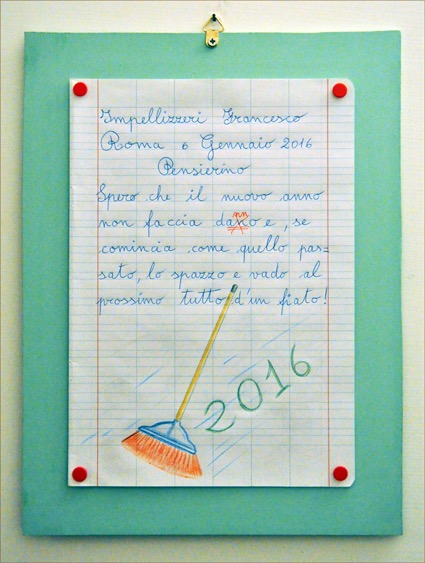 Impellizzeri Francesco
Roma 6 Gennaio 2016
Pensierino
Spero che il nuovo anno
nn
non faccia dano e, se
comincia come quello pas=
sato, lo spazzo e vado al
prossimo tutto d'un fiato!
2016